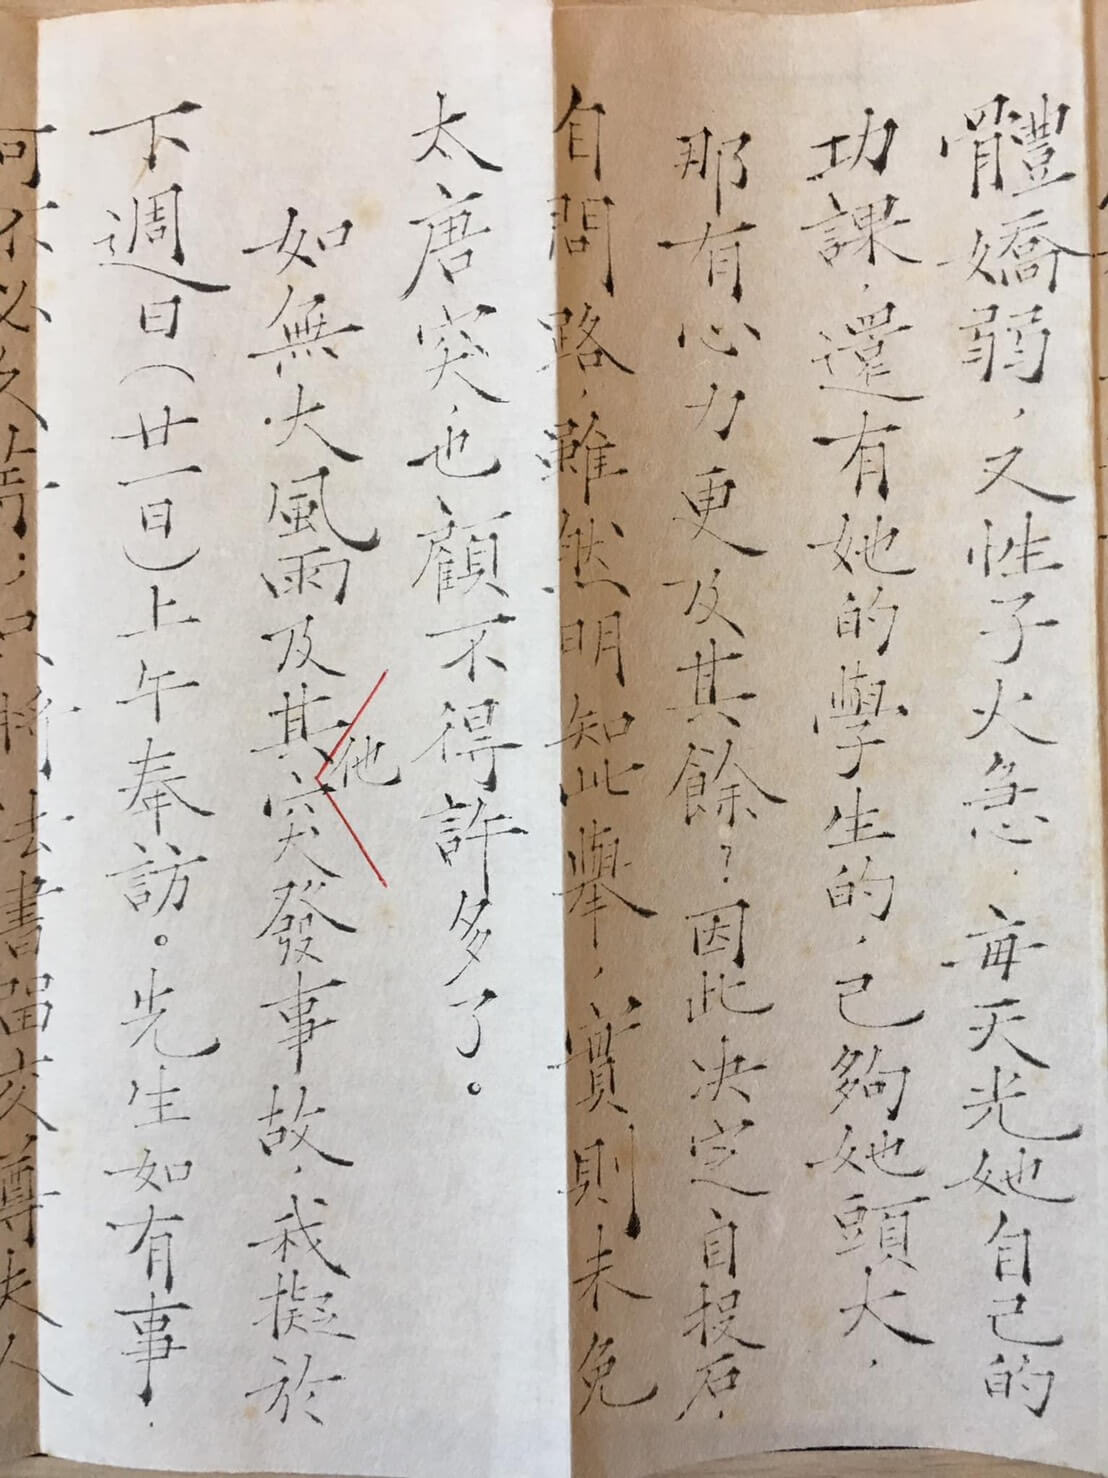 體嬌弱，又性子火急．每天光她自己的
功課，還有她的學生的，已夠她頭大，
那有心力更及其餘？因此決定自投石，
自問路，雖然明知此舉，實則未免
太唐突，也顧不得許多了。
如無大風雨及其他突發事故，我擬於
下週日（廿一日）上午奉訪。先生如有事，
何不必久等；只將法書留交尊夫人